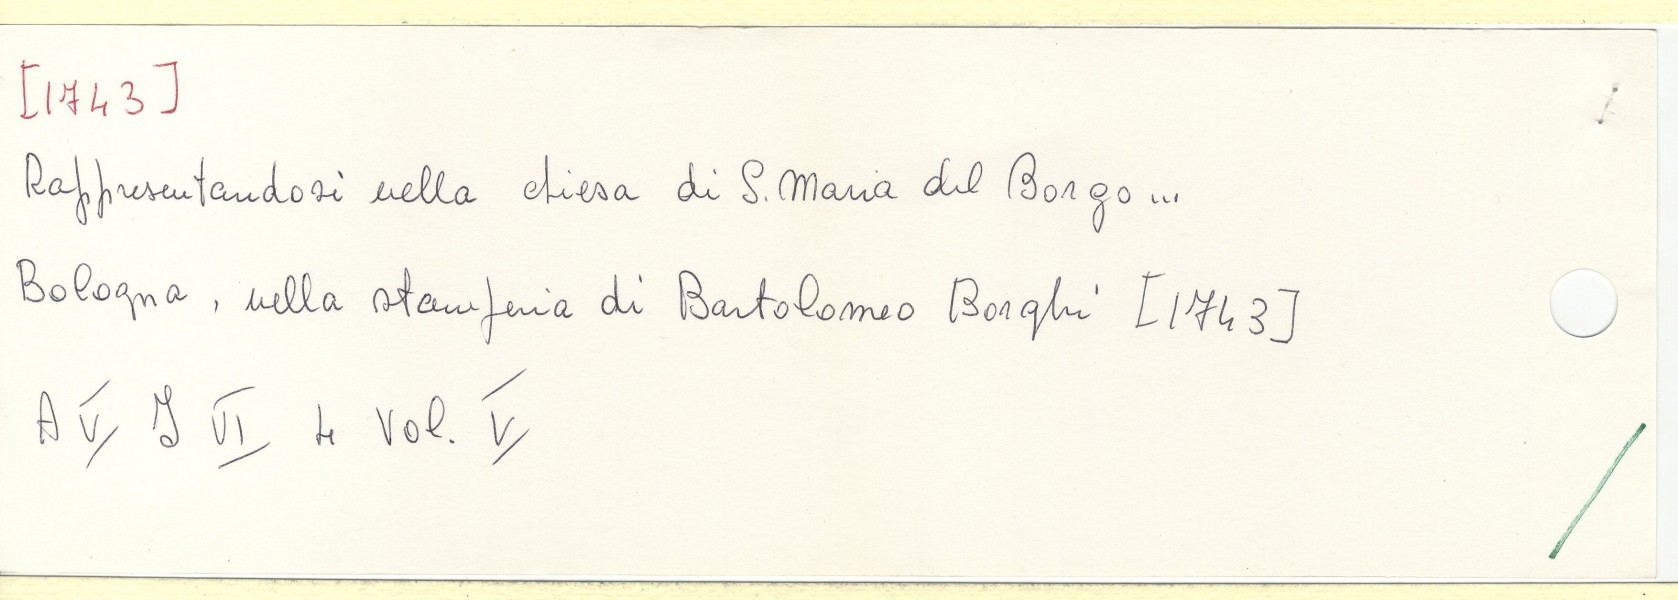 [1743]
Rappresentandosi nella chiesa di S. Maria del Borgo...
Bologna, nella stamperia di Bartolomeo Borghi [1743]
A V J VI 4 Vol. V